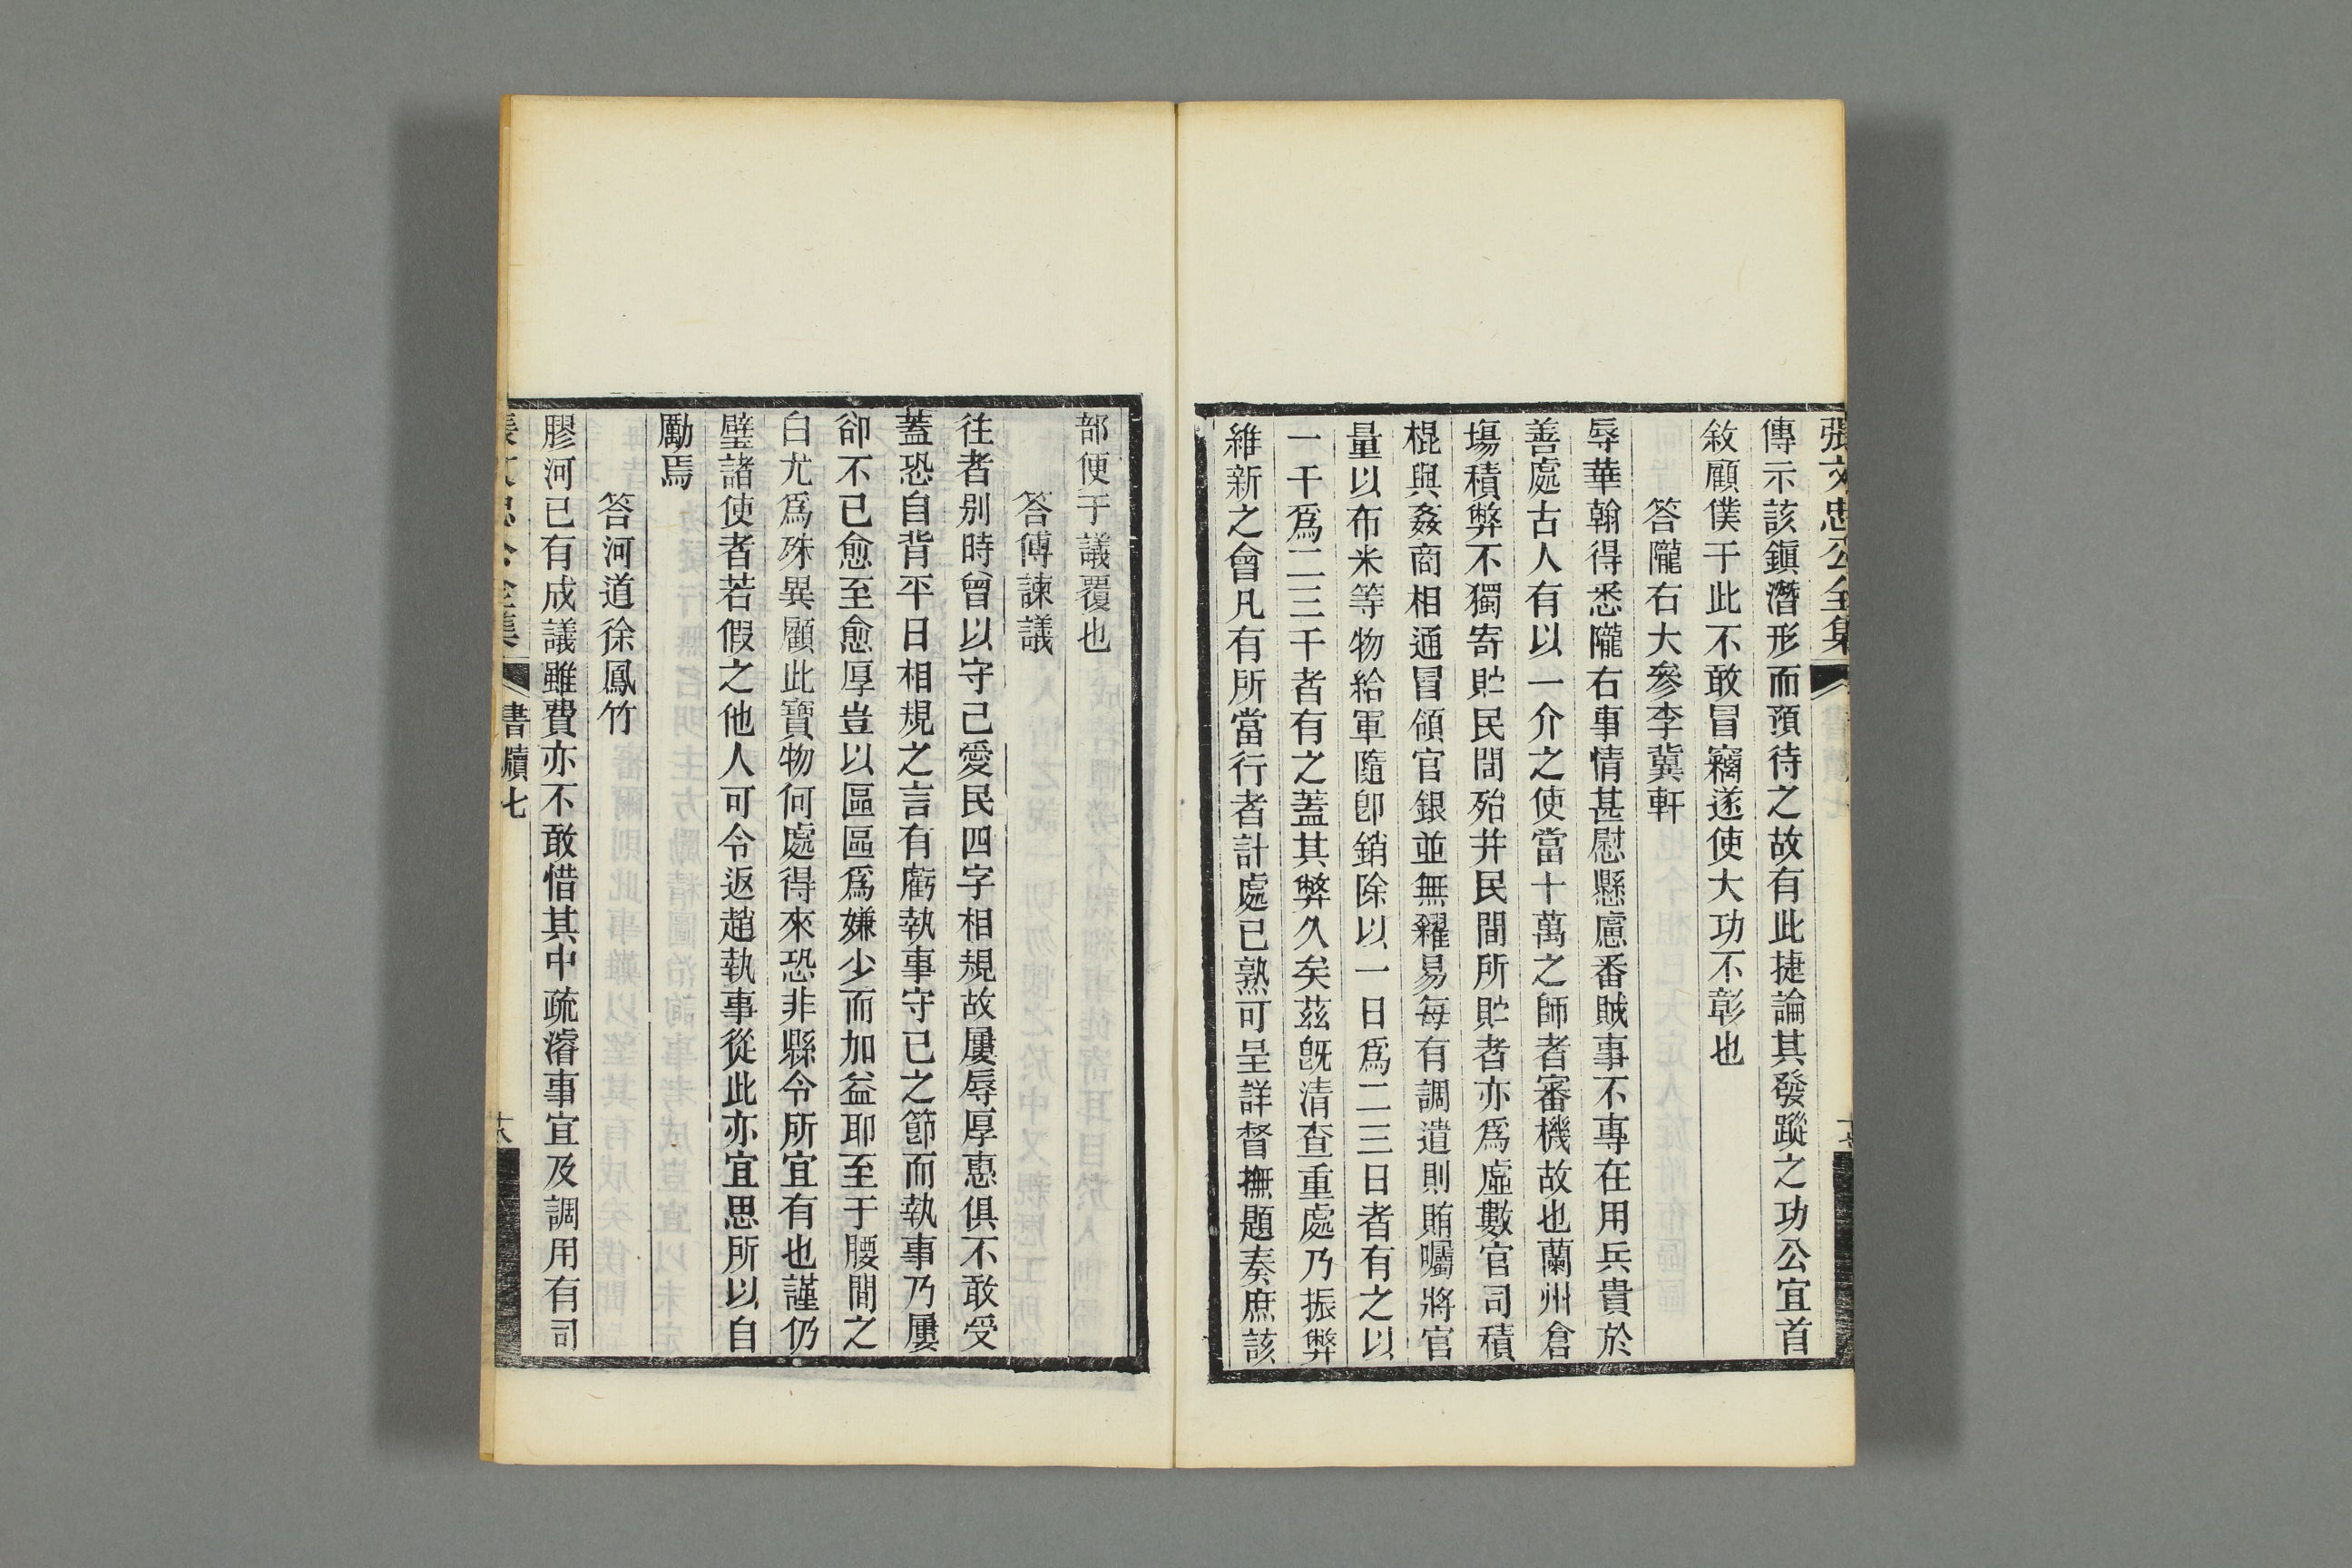 張文忠公全集
傳示該鎭潛形而預待之故有此捷論其發蹤之功公宜首
敘顧僕于此不敢冒竊遂使大功不彰也
答隴右大參李冀軒
辱華翰得悉隴右事情甚慰懸慮番賊事不專在用兵貴於
善處古人有以一介之使當十萬之師者審機故也蘭州倉
塲積弊不獨寄貯民間殆井民間所貯者亦爲虛數官司積
棍與姦商相通冒領官銀並無糴易每有調遣則賄囑將官
量以布米等物給軍隨卽銷除以一日爲二三日者有之以
一千爲二三千者有之蓋其弊久矣茲旣清查重處乃振弊
維新之會凡有所當行者計處已熟可呈詳督撫題奏庶該
部便于議覆也
答傅諫議
往者别時曾以守己愛民四字相規故屢辱厚惠俱不敢受
蓋恐自背平日相規之言有虧執事守己之節而執事乃屢
卻不已愈至愈厚豈以區區爲嫌少而加益耶至于腰間之
白尤爲殊異顧此寶物何處得來恐非縣令所宜有也謹仍
璧諸使者若假之他人可令返趙執事從此亦宜思所以自
勵焉
答河道徐鳳竹
膠河已有成議雖費亦不敢惜其中疏濬事宜及調用有司
張文忠公全集 書牘七 十八